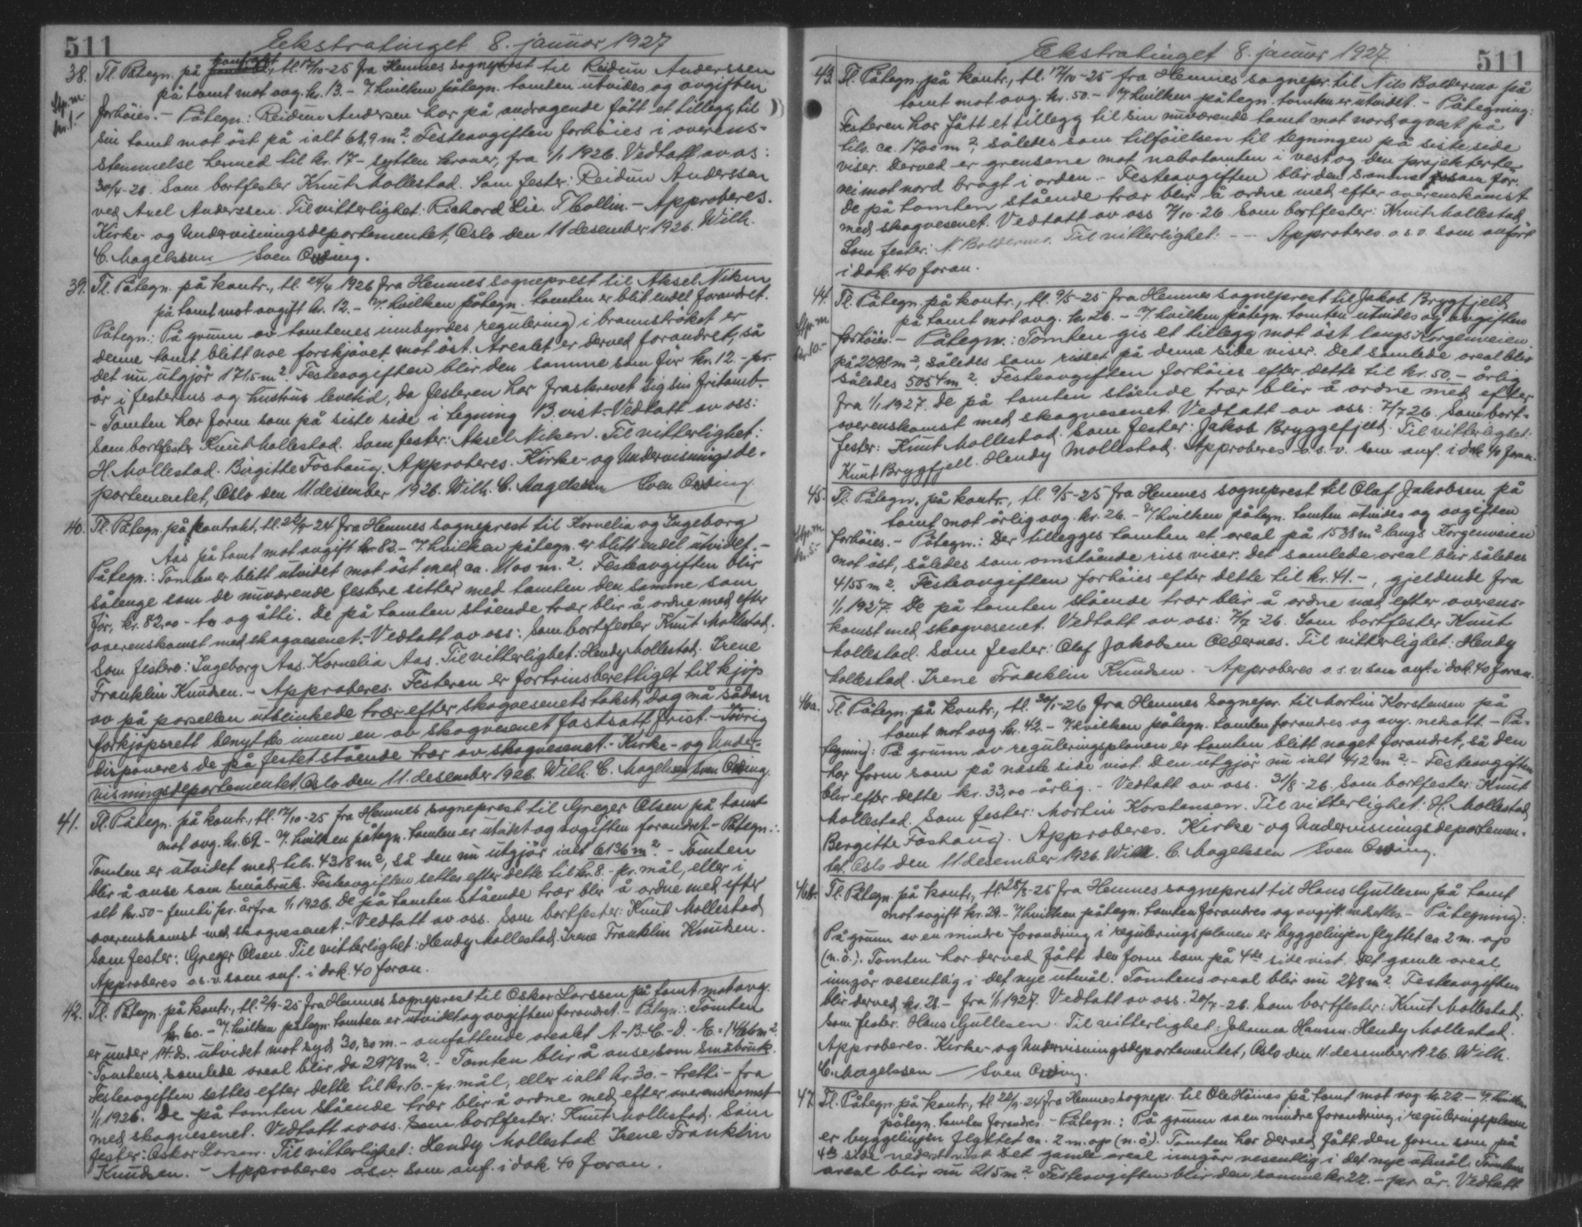 511
Ekstratinget 8. januar 1927
38. Tl. Påtegn. på kontrakt, tl. 17/10-25 fra Hemnes sogneprest til Reidun Anderssen
på tomt mot avg. kr. 13.- 7 hvilken påtegn. tomten utvides og avgiften
Stp. m. kr. 1.-
forhöies.- Påtegn: Reidun Andersen har på andragende fått et tillegg til
sin tomt mot öst på ialt 68,9 m². Festeavgiften forhöies i overens-
stemmelse hermed til kr. 17- sytten kroner, fra 1/1 1926. Vedtatt av os:
Som bortfester Knut Mollestad. Som fester: Reidun Anderssen
ved Axel Anderssen. Til vitterlighet: Richard Lie. T Collin.- Approberes.
Kirke- og Undervisningsdepartementet, Oslo den 11 desember 1926. Wilh.
C. Magelssen Sven Oding.
39. Tl. Påtegn. på kontr., tl. 1926 fra Hemnes sogneprest til Aksel Niken
på tomt mot avgift kr. 12.- 7 hvilken påtegn. tomten er blit endel forandret.
Påtegn: På grunn av tomtenes innbyrdes regulering i brannströket er
denne tomt blitt noe forskjövet mot öst. Arealet er derved forandret, så
det nu utgjör 1715 m². Festeavgiften blir den samme som för kr. 12.- pr.
år i festerens og hustrus levetid, da festeren har fraskrevet sig sin fritomt.
- Tomten har form som på siste side i tegning B. vist. Vedtatt av oss:
Som bortfester Knut Mollestad. Som fester: Aksel Niken. Til vitterlighet:
H. Mollestad. Birgitte Foshaug. Approberes. Kirke- og Undervisningsde-
partementet, Oslo den 11 desember 1926. Wilh. C. Magelssen Sven Oding
40. Tl. Påtegn. på kontrakt, tl. 24 fra Hemnes sogneprest til Kornelia og Ingeborg
Aas på tomt mot avgift kr 82.- 7 hvilken påtegn. er blitt endel utvidet.-
Påtegn.: Tomten er blitt utvidet mot öst med ca. 1100 m². Festeavgiften blir
sålenge som de nuværende festere sitter med tomten den samme som
för, kr. 82,00 - to og åtti. De på tomten stående trær blir å ordne med efter
overenskomst med skogvesenet.- Vedtatt av oss: Som bortfester Knut Mollestad.
Som festere: Ingeborg Aas. Kornelia Aas. Til vitterlighet: Hendy Mollestad. Irene
Franklin Knudsen.- Approberes. Festeren er fortrinsberettiget til kjöp
av på parsellen utblinkede trær efter skogvesenets takst, dog må sådan
forkjöpsrett benyttes innen en av skogvesenet fastsatt frist.- Övrig
disponeres de på festet stående trær av skogvesenet.- Kirke- og Under-
visningsdepartementet Oslo den 11. desember 1926. Wilh. C. Magelssen Sven Oding.
41. Tl. Påtegn. på kontr., tl. 17/10-25 fra Hemnes sogneprest til Greger Olsen på tomt
mot avg. kr. 69.- 7 hvilken påtegn. tomten er utvidet og avgiften forandret.- Påtegn.:
Tomten er utvidet med tils. 4318 m², så den nu utgjör ialt 6136 m².- Tomten
blir å anse som småbruk. Festeavgiften settes efter dette til kr. 8.- pr. mål, eller i
alt kr. 50- femti pr. år fra 1/1 1926. De på tomten stående trær blir å ordne med efter
overenskomst med skogvesenet.- Vedtatt av oss. Som bortfester: Knut Mollestad
Som fester: Greger Olsen. Til vitterlighet: Hendy Mollestad. Irene Franklin Knudsen.
Approberes o.s.v. som anf. i dok. 40 foran.
42. Tl. Påtegn. på kontr., tl. 25 fra Hemnes sogneprest til Oskar Larssen på tomt mot avg.
kr. 60.- 7 hvilken påtegn. tomten er utvidet og avgiften forandret.- Påtegn.: Tomten
er under 14. ds. utvidet mot syd 30,30 m.- omfattende arealet A-B-C-D-E = m².
Tomtens samlede areal blir da 2978 m². Tomten blir å anse som småbruk.
Festeavgiften settes efter dette til kr. 10.- pr. mål, eller ialt kr. 30.- tretti.- fra
1/1 1926. De på tomten stående trær blir å ordne med efter overenskomst
med skogvesenet. Vedtatt av oss. Som bortfester: Knut Mollestad. Som
fester: Oskar Larsen. Til vitterlighet: Hendy Mollestad. Irene Franklin
Knudsen.- Approberes o.s.v som anf. i dok 40 foran.
Ekstratinget 8. januar 1927
511
43. Tl. Påtegn. på kontr., tl. 17/10-25 fra Hemnes sognepr. til Nils Boldermo på
tomt mot avg. kr. 50.- 7 hvilken påtegn. tomten er utvidet.- Påtegning:
Festeren har fått et tillegg til sin nuværende tomt mot nord og vest på
tils. ca. 1700 m², således som tilföielsen til tegningen på siste side
viser. Derved er grensene mot nabotomten i vest og den projekterte
vei mot nord bragt i orden.- Festeavgiften blir den samme som för.
De på tomten stående trær blir å ordne med efter overenskomst
med skogvesenet. Vedtatt av oss 10-26 Som bortfester: Knut Mollestad
Som fester: N Boldermo. Til vitterlighet: -- Approberes o.s.v. som anfört
i dok. 40 foran.
44. Tl. Påtegn. på kontr., tl. 9/5-25 fra Hemnes sogneprest til Jakob Bryggfjeld
på tomt mot avg. kr. 26.- 7 hvilken påtegn. tomten utvides og avgiften
Stp. m. kr. 10.-
forhöies.- Påtegn.: Tomten gis et tillegg mot öst langs Korgenveien
på 2298 m², således som risset på denne side viser. Det samlede areal blir
således 5054 m². Festeavgiften forhöies efter dette til kr. 50.- årlig
fra 1/1 1927. De på tomten stående trær blir å ordne med efter
overenskomst med skogvesenet. Vedtatt av oss: 7/7 26. Som bort-
fester: Knut Mollestad. Som fester: Jakob Bryggefjeld. Til vitterlighet:
Knut Bryggfjell. Hendy Mollestad. Approberes o.s.v. som anf. i dok 40 foran.
45. Tl. Påtegn. på kontr., tl. 9/5-25 fra Hemnes sogneprest til Olaf Jakobsen på
tomt mot årlig avg. kr. 26.- 7 hvilken påtegn. tomten utvides og avgiften
Stp. m. kr. 5.-
forhöies.- Påtegn.: Der tillegges tomten et areal på 1538 m² langs Korgenveien
mot öst, således som omstående riss viser. Det samlede areal blir således
4155 m². Festeavgiften forhöies efter dette til kr. 41.-, gjeldende fra
1/1 1927. De på tomten stående trær blir å ordne med efter overens-
komst med skogvesenet. Vedtatt av oss: 26. Som bortfester Knut
Mollestad. Som fester: Olaf Jakobsen Oldernes. Til vitterlighet: Hendy
Mollestad. Irene Franklin Knudsen. Approberes o.s.v som anf. i dok 40 foran.
46a. Tl. Påtegn. på kontr., tl. 26 fra Hemnes sognepr. til Martin Korstensen på
tomt mot avg kr. 42.- 7 hvilken påtegn. tomten forandres og avg. nedsatt.- På-
tegning: På grunn av reguleringsplanen er tomten blitt noget forandret, så den
har form som på næste side vist. Den utgjör nu ialt 412 m².- Festeavgiften
blir efter dette kr. 33,00 årlig.- Vedtatt av oss. 31/8-26. Som bortfester: Knut
Mollestad. Som fester: Martin Korstensen. Til vitterlighet: H. Mollestad
Bergitte Foshaug. Approberes. Kirke- og Undervisningsdepartemen-
tet Oslo den 11 desember 1926. Wilh. C. Magelssen Sven Oding.
46b. Tl. Påtegn. på kontr., tl. 25 fra Hemnes sogneprest til Hans Gullesen på tomt
mot avgift kr. 29.- 7 hvilken påtegn. tomten forandres og avgift. nedsettes.- Påtegning:
På grunn av en mindre forandring i reguleringsplanen er byggelinjen flyttet ca 2 m. op
(n.ö.). Tomten har derved fått den form som på 4de side vist. Det gamle areal
inngår vesentlig i det nye utmål. Tomtens areal blir nu 278 m². Festeavgiften
blir derved kr. 28.- fra 1/1 1927. Vedtatt av oss. 26. Som bortfester: Knut Mollestad.
Som fester. Hans Gullesen. Til vitterlighet: Johanna Hansen. Hendy Mollestad.
Approberes. Kirke- og Undervisningsdepartementet, Oslo den 11 desember 1926. Wilh.
C. Magelssen Sven Oding.
47. Tl. Påtegn. på kontr., tl. 24 fra Hemnes sognepr. til Ole Hånes på tomt mot avg kr. 22.- 7 hvilken
påtegn. tomten forandres.- Påtegn.: På grunn av en mindre forandring i reguleringsplanen
er byggelinjen flyttet ca. 2 m. op (n.ö). Tomten har derved fått den form som på
4de side nederst vist. Det gamle areal inngår vesentlig i det nye utmål. Tomtens
areal blir nu 215 m². Festeavgiften blir den samme kr 22.- pr. år. Vedtatt